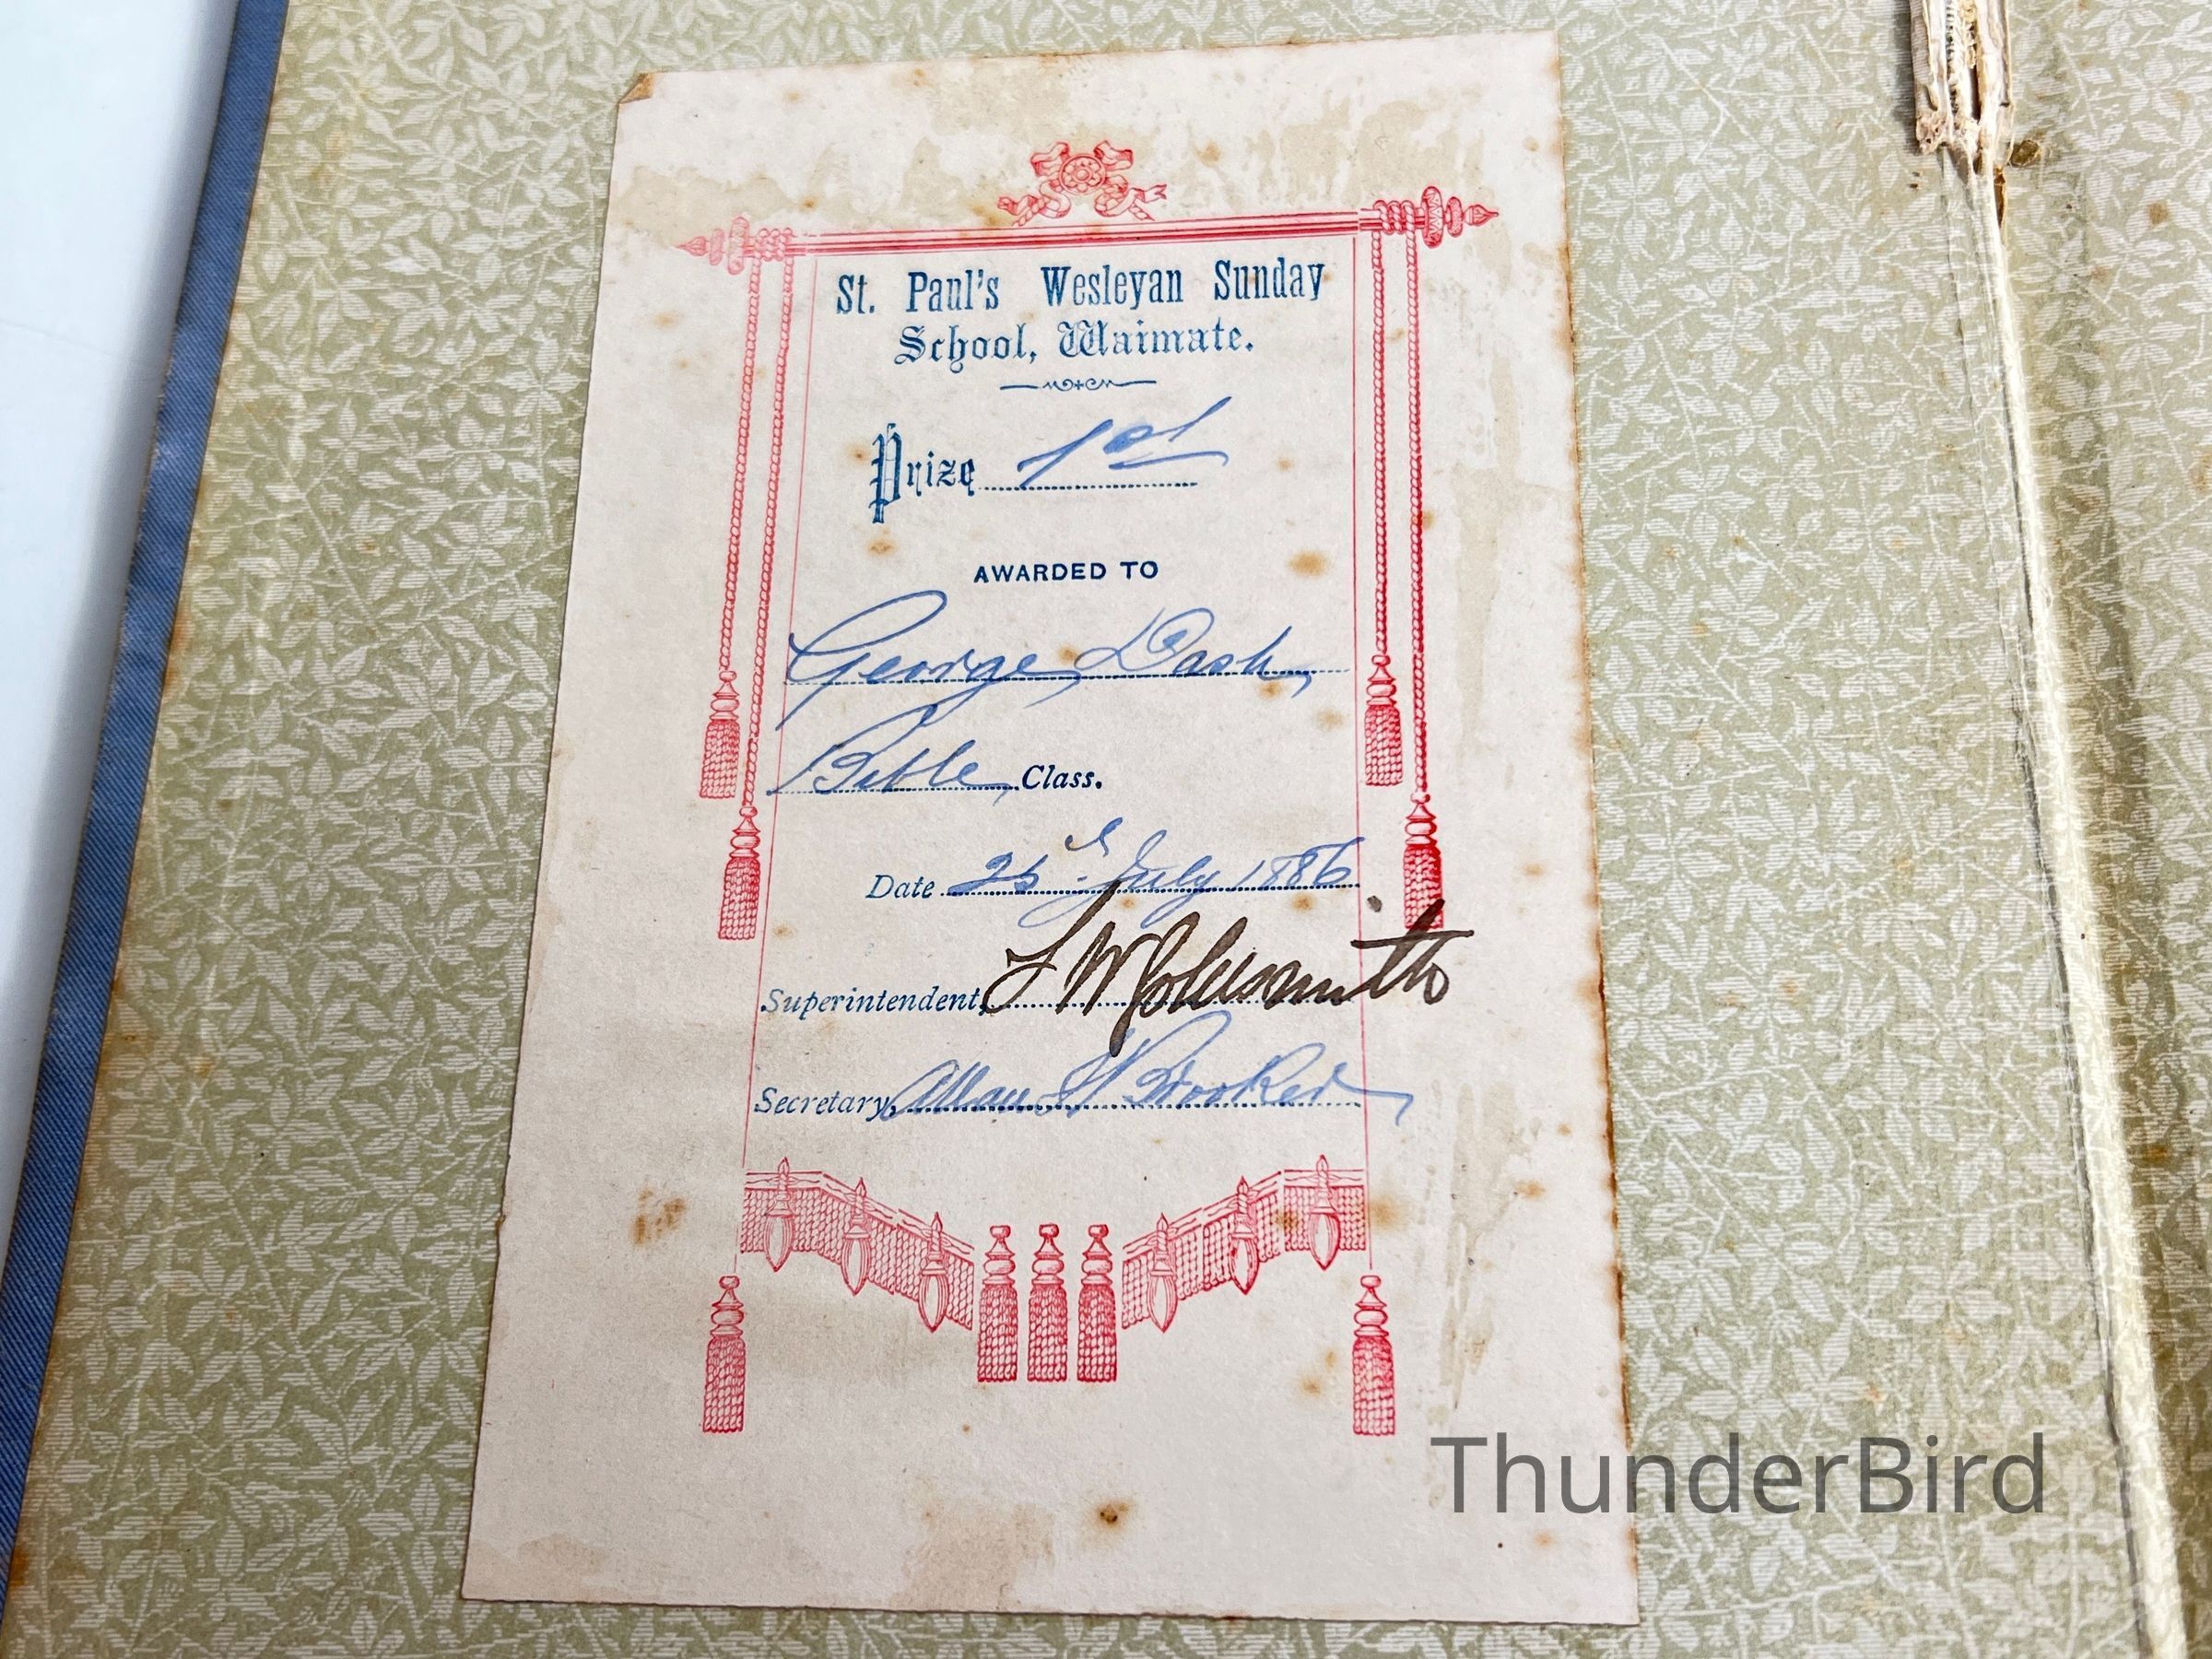 St. Paul's Wesleyan Sunday
School, Waimate.
Prize 1st
AWARDED TO
George Dash,
Bible Class.
Date 25th July 1886
Superintendent, Goldsmith
Secretary, Allan H Brooker
ThunderBird